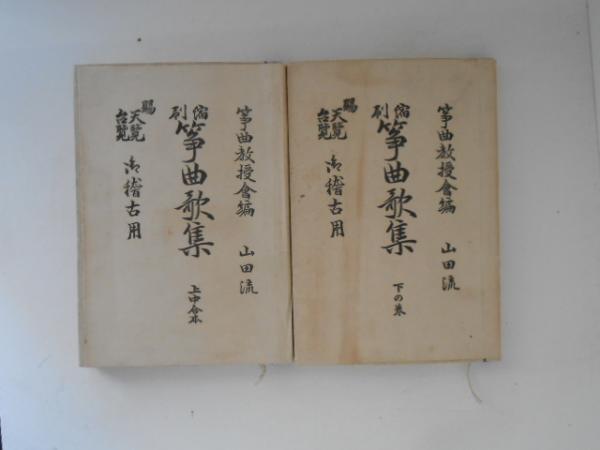 箏曲教授會編 山田流
縮刷 箏曲歌集 上中合本
賜 天覧 台覧 御稽古用
箏曲教授會編 山田流
縮刷 箏曲歌集 下の巻
賜 天覧 台覧 御稽古用